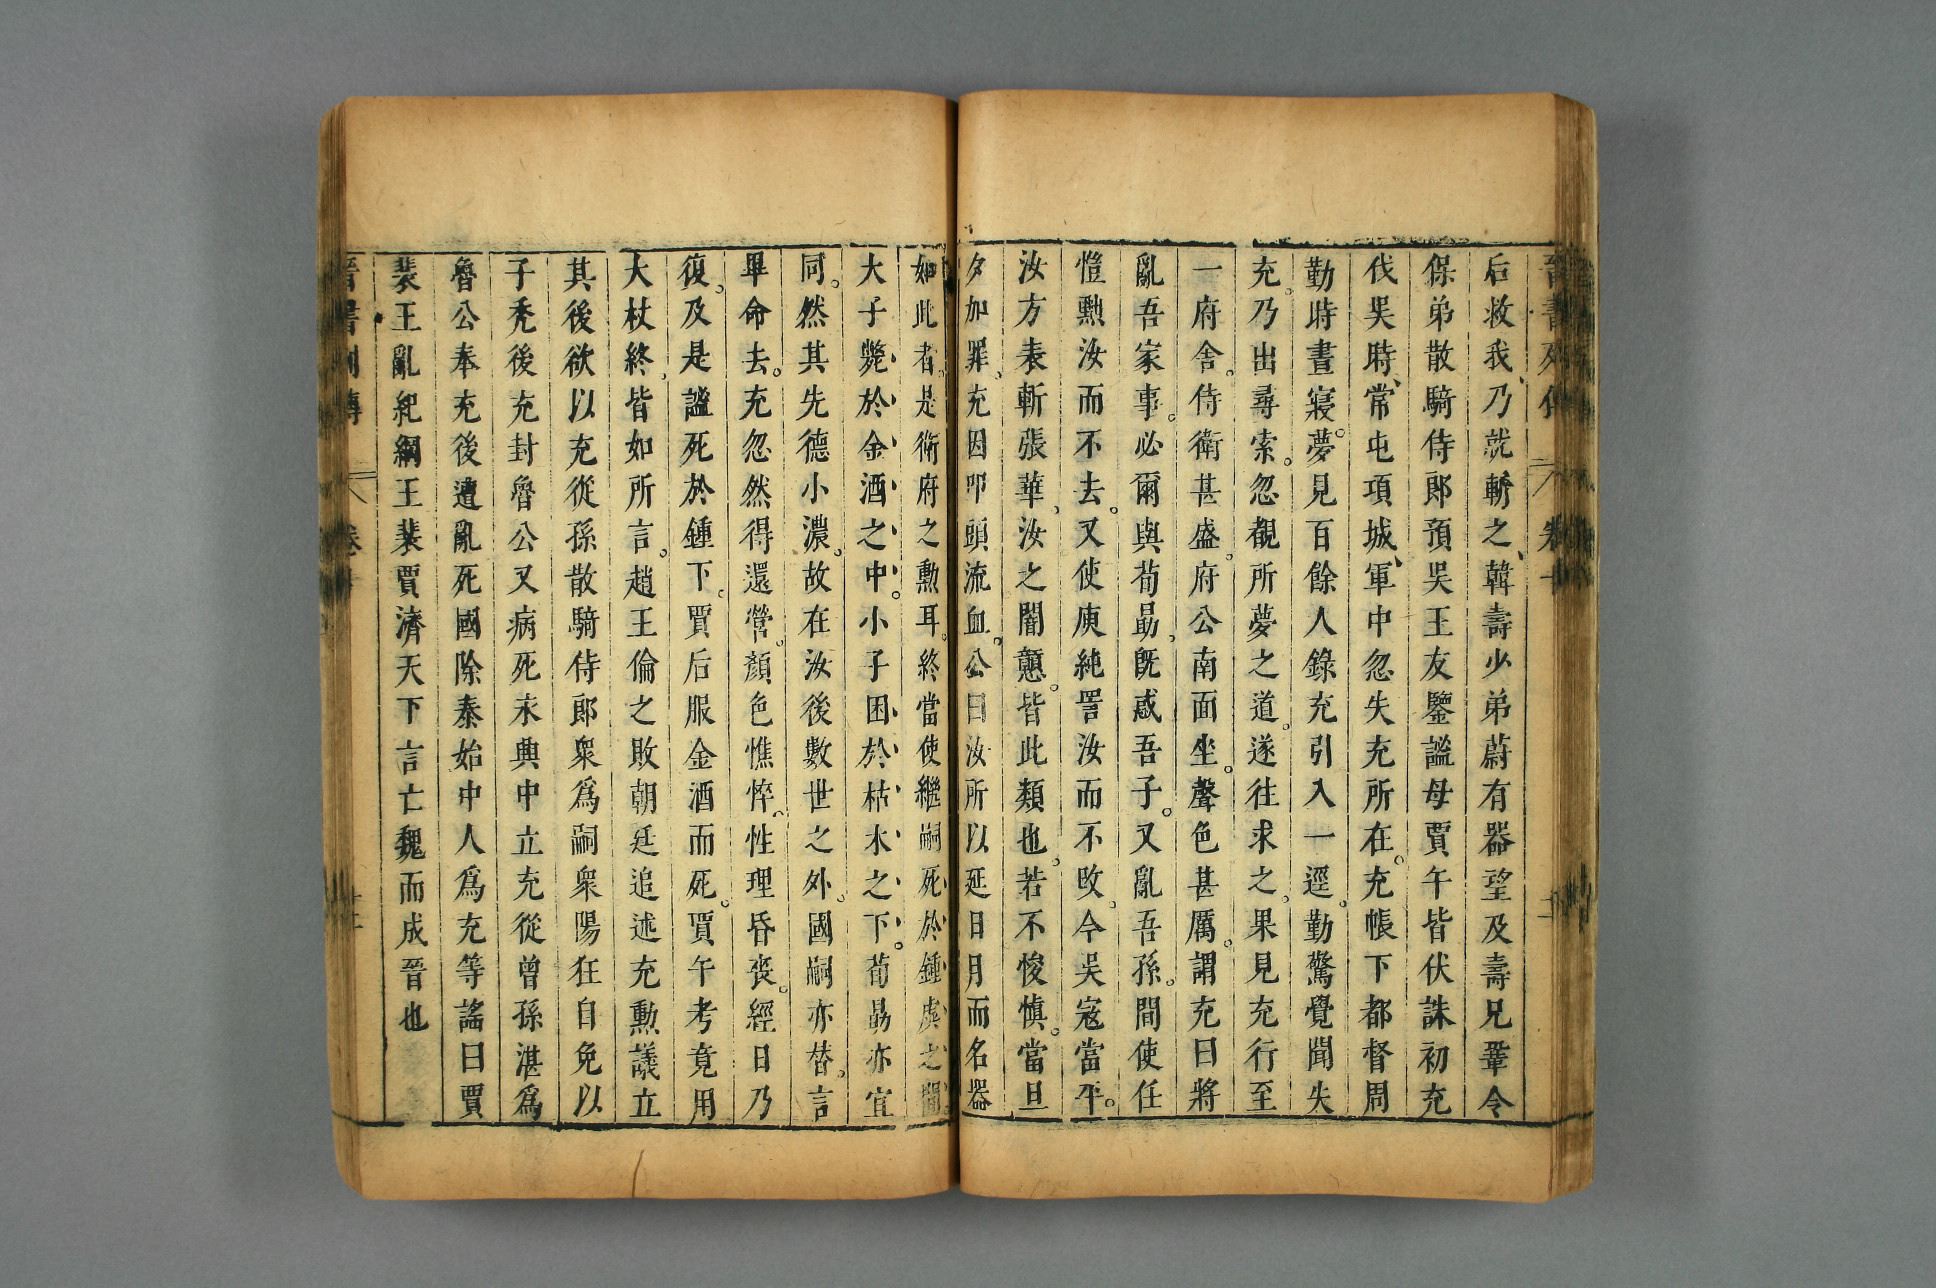 晉書列傳 卷十
后救我乃就斬之韓壽少弟蔚有器望及壽兄鞏令
保弟散騎侍郎預吳王友鑒謐母賈午皆伏誅初充
伐吳時常屯項城軍中忽失充所在充帳下都督周
勤時晝寢夢見百餘人錄充引入一逕勤驚覺聞失
充乃出尋索忽覩所夢之道遂往求之果見充行至
一府舍侍衛甚盛府公南面坐聲色甚厲謂充曰將
亂吾家事必爾與荀勗旣惑吾子又亂吾孫間使任
愷黜汝而不去又使庾純詈汝而不改今吳寇當平
汝方表斬張華汝之闇戇皆此類也若不悛慎當旦
夕加罪充因叩頭流血公曰汝所以延日月而名器
如此者是衛府之勳耳終當使繼嗣死於鍾虡之間
大子斃於金酒之中小子困於枯木之下荀勗亦宜
同然其先德小濃故在汝後數世之外國嗣亦替言
畢命去充忽然得還營顏色憔悴性理昏喪經日乃
復及是謐死於鍾下賈后服金酒而死賈午考竟用
大杖終皆如所言趙王倫之敗朝廷追述充勳議立
其後欲以充從孫散騎侍郎衆爲嗣衆陽狂自免以
子禿後充封魯公又病死永興中立充從曾孫湛爲
魯公奉充後遭亂死國除泰始中人爲充等謠曰賈
裴王亂紀綱王裴賈濟天下言亡魏而成晉也
晉書列傳 卷十